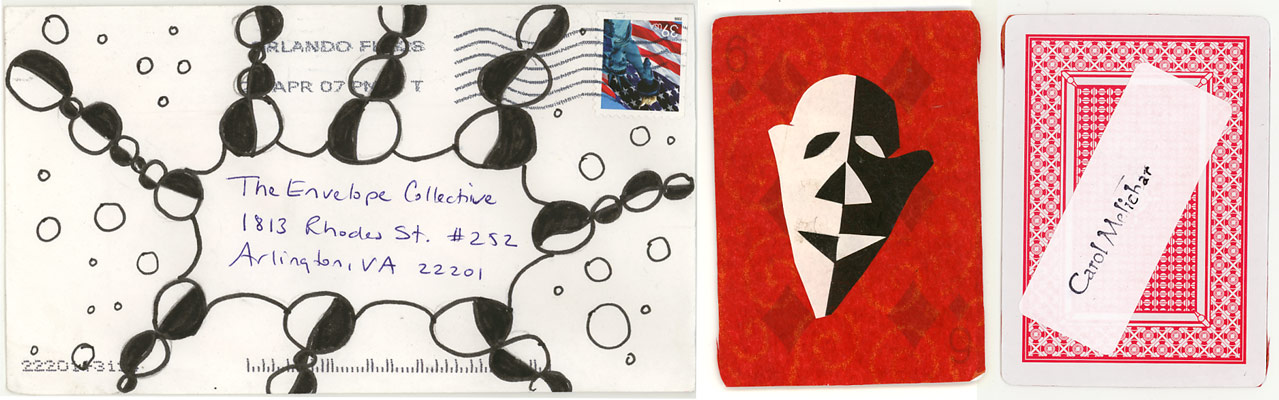 RLANDO
APR 07 PM T
39
The Envelope Collective
1813 Rhodes St. #252
Arlington, VA 22201
Carol Melichar